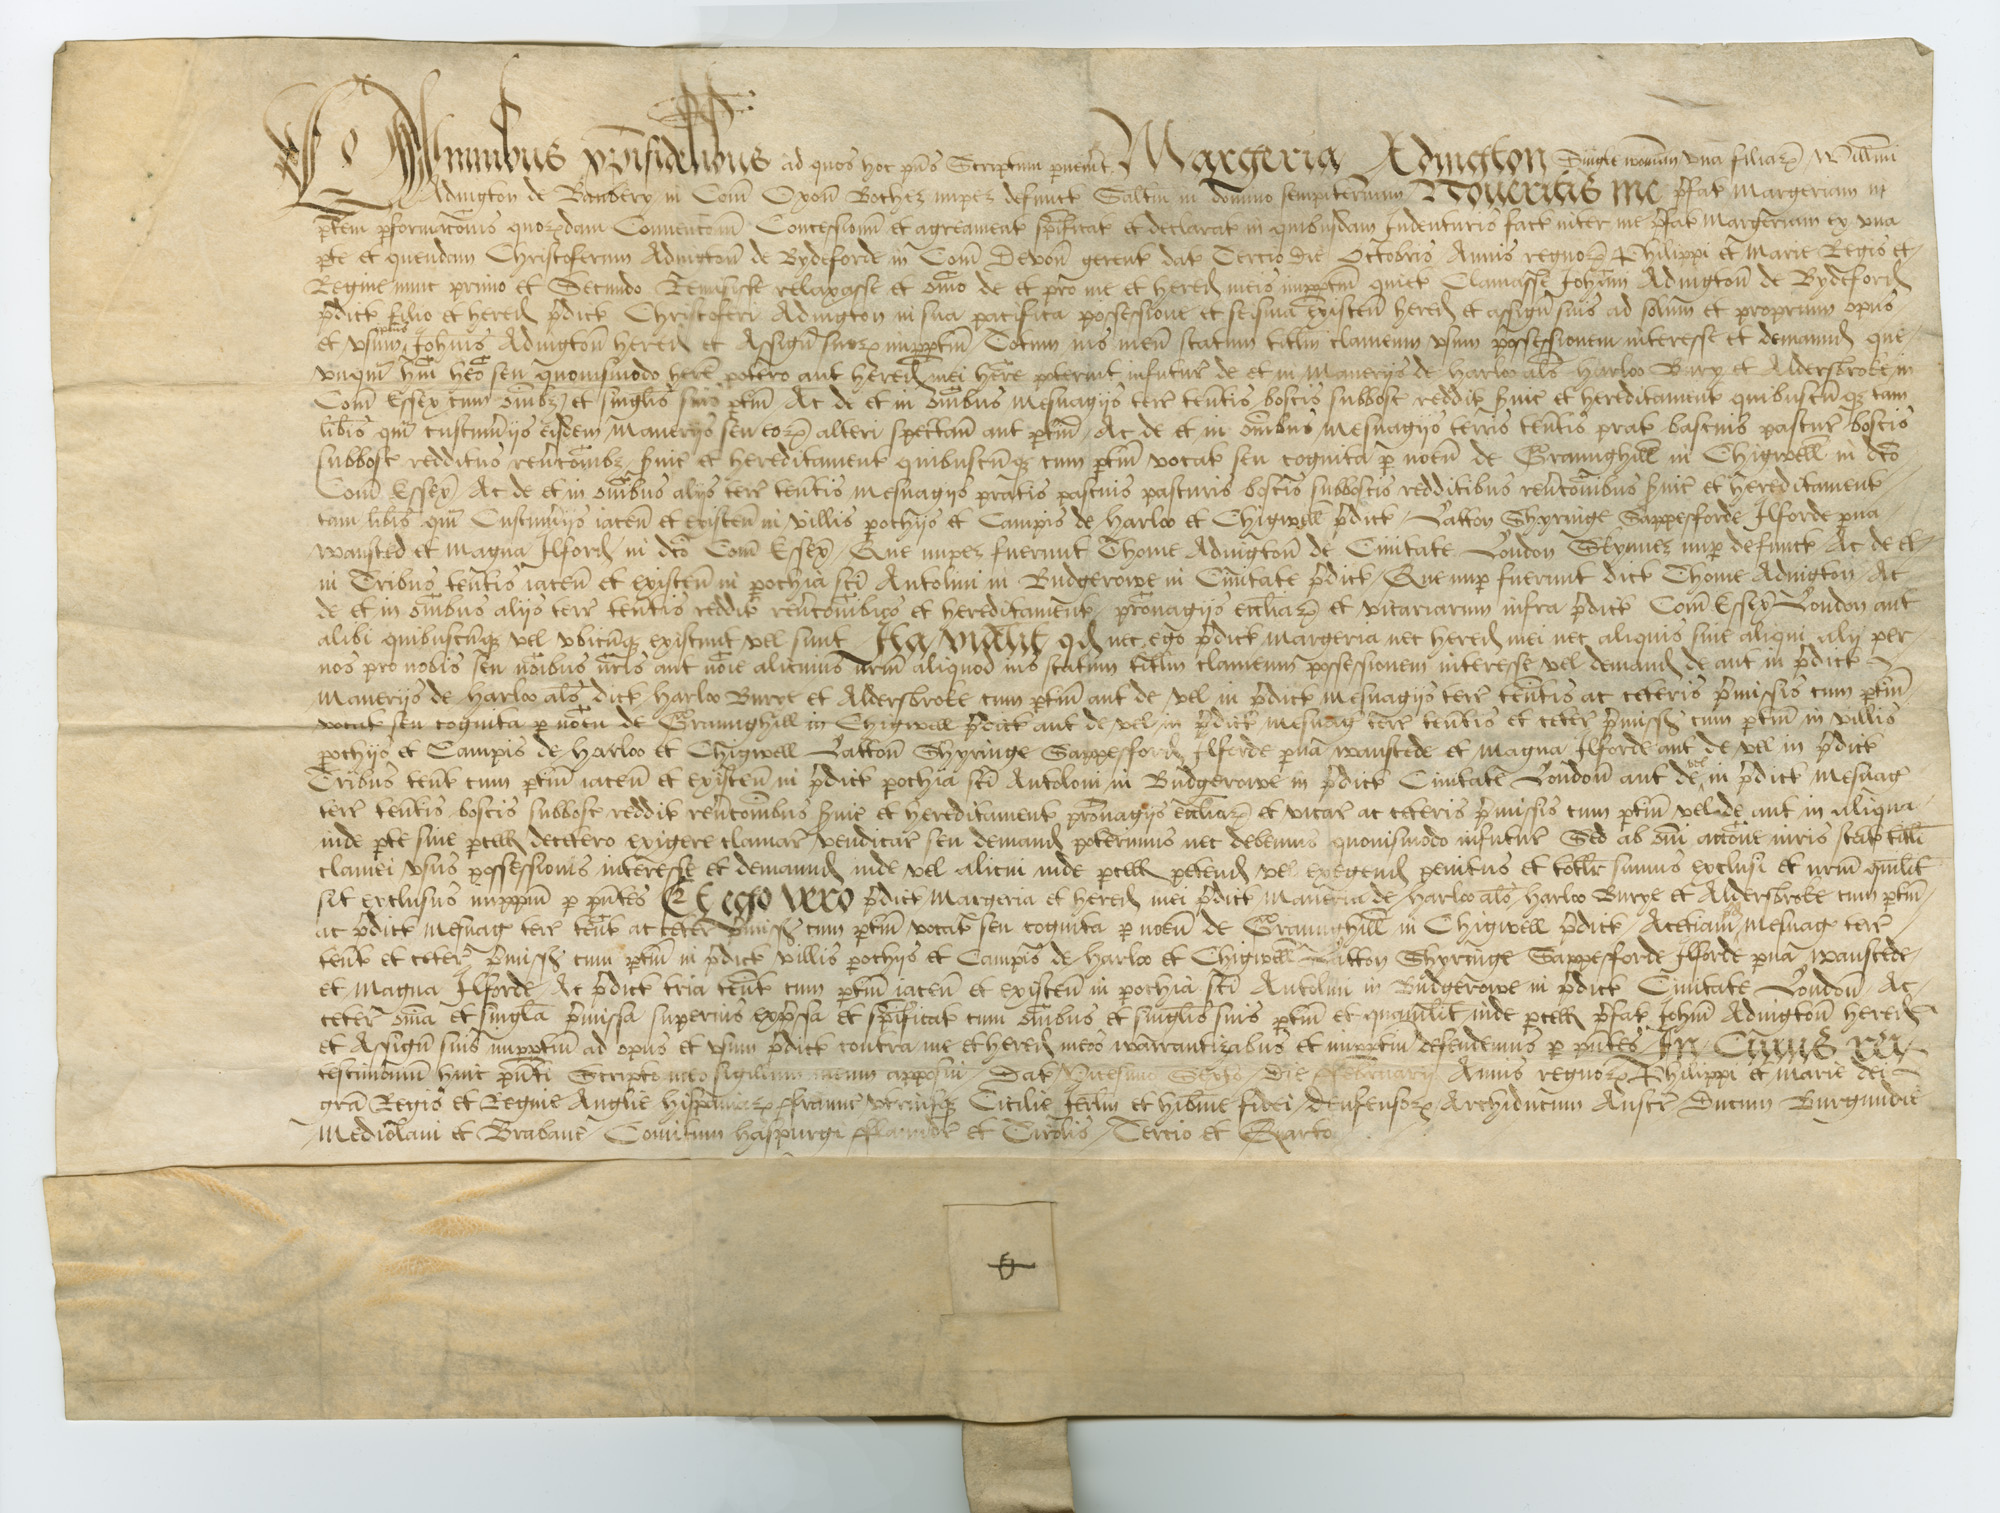 Omnibus xp̄ifidelibus ad quos hoc pn̄s Scriptum pvenit Margeria Adington Single woman una filiaꝝ Willm̄i
Adington de Banbery in Com̄ Oxon̄ nuper defunct Salt̄m in domino sempiternam Noveritis me p̄fat Margeriam in
ptem pformac̄onis quoꝝdam Convenc̄on̄ Concession̄ et agreament sp̄ificat et declarat in quibusdam Indenturis fact inter me p̄fat Margeriam ex una
pte et quendam Christoferum Adington̄ de Bydeforde in Com̄ Devon̄ gerent dat Tercio die Octobris Annis regnoꝝ Philippi et Marie Regis et
Regine nunc primo et Secundo Remisisse relaxasse et om̄o de et pro me et hered meis imppm̄ quiet Clamasse Joh̄ni Adington̄ de Bydeford
p̄dict filio et hered p̄dict Christoferi Adington in sua pacifica possessione et seisina existen̄ hered et assign̄ suis ad solum et proprium opus
et usum ipius Joh̄nis Adington̄ hered et Assign̄ suoꝝ imppm̄ Totum ius meum statum titlm̄ clameum usum possessionem interesse et demaund que
unqm̄ h̄ui h̄eo seu quovismodo her̄e potero aut hered mei her̄e poterint infutur̄ de et in Manerijs de Harloo als̄ Harloo Bury et Aldersbroke in
Com̄ Essex cum om̄ibꝫ et singlis suis ptin̄ Ac de et in om̄ibus Mesuagijs terr̄ ten̄tis boscis subbosc reddit s̄vic et hereditament quibuscūqꝫ tam
lib̄is qm̄ custum̄ijs eisdem Manerijs seu eoꝝ alteri spectan̄ aut ptin̄ Ac de et in om̄ibus Mesuagijs terris ten̄tis prat pascuis pastur̄ boscis
subbosc redditus rev̄c̄oibꝫ s̄vic et hereditament quibuscūqꝫ cum ptin̄ vocat seu cognita p nomen de Graunghill in Chigwell in dc̄o
Com̄ Essex Ac de et in om̄ibus alijs terr̄ ten̄tis Mesuagijs pratis pascuis pasturis boscis subboscis redditibus rev̄c̄onibus s̄vic et hereditament
tam lib̄is qm̄ Custum̄ijs iacen̄ et existen̄ in villis pochijs et Campis de Harloo et Chigwell p̄dict Latton Shyringe Sappesforde Ilforde pva
Wansted et Magna Ilford in dc̄o Com̄ Essex Que nuper fuerunt Thome Adington̄ de Civitate London Skynner nup defunct Ac de et
in Tribus ten̄tis iacen̄ et existen̄ in pochia sc̄i Antolini in Budgerowe in Civitate p̄dict Que nup fuerunt dict Thome Adington Ac
de et in om̄ibus alijs terr̄ ten̄tis reddit rev̄c̄onibus et hereditament pronagijs eccliaꝝ et vicariarum infra p̄dict Com̄ Essex London aut
alibi quibuscūqꝫ vel ubicūqꝫ existunt vel sunt Ita videl̄t qd nec ego p̄dict Margeria nec hered mei nec aliquis sive aliqui alij per
nos pro nobis seu no̅ibus nr̄is aut no̅ie alicuius nr̄m aliquod ius statum titlm̄ clameum possessionem interesse vel demaund de aut in p̄dict
Manerijs de Harloo als̄ dict Harloo Burye et Aldersbroke cum ptin̄ aut de vel in p̄dict Mesuagijs terr̄ ten̄tis ac ceteris p̄missis cum ptin̄
vocat seu cognita p nomen de Graunghill in Chigwell p̄dict aut de vel in p̄dict Mesuag terr̄ ten̄tis et ceter̄ p̄miss cum ptin̄ in villis
pochijs et Campis de Harloo et Chigwell Latton̄ Shyringe Sappesford Ilforde pva Wanstede et Magna Ilforde aut de vel in p̄dict
Tribus ten̄t cum ptin̄ iacen̄ et existen̄ in p̄dict pochia sc̄i Antoloni in Budgerowe in p̄dict Civitate London̄ aut de vel in p̄dict Mesuag
terr̄ ten̄tis boscis subbosc reddit rev̄c̄onibus s̄vic et hereditament pronagijs eccliaꝝ et vicar̄ ac ceteris p̄missis cum ptin̄ vel de aut in aliqua
inde pte sive pcell decetero exigere clamar̄ vendicar̄ seu demaund poterimus nec debemus quovismodo infutur̄ Sed ab om̄i acc̄one iuris stat titli
clamei usus possessionis interesse et demaund inde vel alicui inde pcell petend vel exegend penitus et totlr̄ simus exclusi et nr̄m quilit
sit exclusus imppm̄ p pn̄tes Et ego vero p̄dict Margeria et hered mei p̄dict Maneria de Harloo als̄ Harloo Burye et Aldersbroke cum ptin̄
ac p̄dict Mesuag terr̄ ten̄t ac ceter̄ p̄miss cum ptin̄ vocat seu cognita p nomen de Graunghill in Chigwell p̄dict Acetiam Mesuag terr̄
ten̄t et ceter̄ p̄miss cum ptin̄ in p̄dict villis pochijs et Campis de Harloo et Chigwell Latton Shyringe Sappesforde Ilforde pva Wanstede
et Magna Ilforde Ac p̄dict tria ten̄t cum ptin̄ iacen̄ et existen̄ in pochia sc̄i Antolini in Budgerowe in p̄dict Civitate London̄ Ac
ceter̄ om̄ia et singla p̄missa superius exp̄ssa et sp̄ificat cum om̄ibus et singlis suis ptin̄ et qualibt inde pcell p̄fat Joh̄ni Adington̄ hered
et Assign̄ suis imppm̄ ad opus et usum p̄dict contra me et hered meos Warrantizabimus et imppm̄ defendemus p pn̄tes In Cuius rei
testimonium huic pn̄ti Scripto meo sigillum meum apposui Dat Vicesimo Sexto Die ffebruarij Annis regnoꝝ Philippi et Marie dei
gra Regis et Regine Anglie Hispaniaꝝ ffraunc utriusqꝫ Cicilie Jerlm̄ et Hibn̄ie fidei defensoꝝ Archiducum Austr̄ Ducum Burgundie
Mediolani et Braban̄ Comitum Haspurgi fflandr̄ et Tirolis Tercio et Quarto